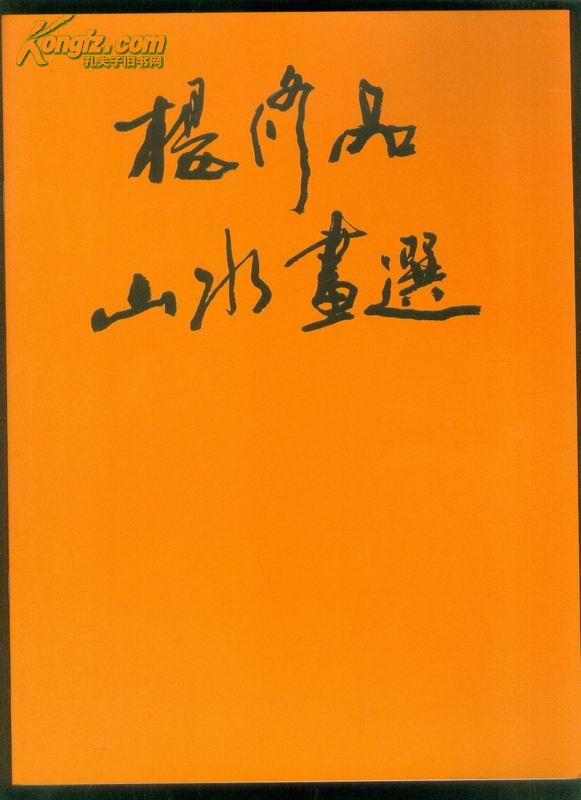 Kongfz.com
孔夫子旧书网
楊修品
山水畫選